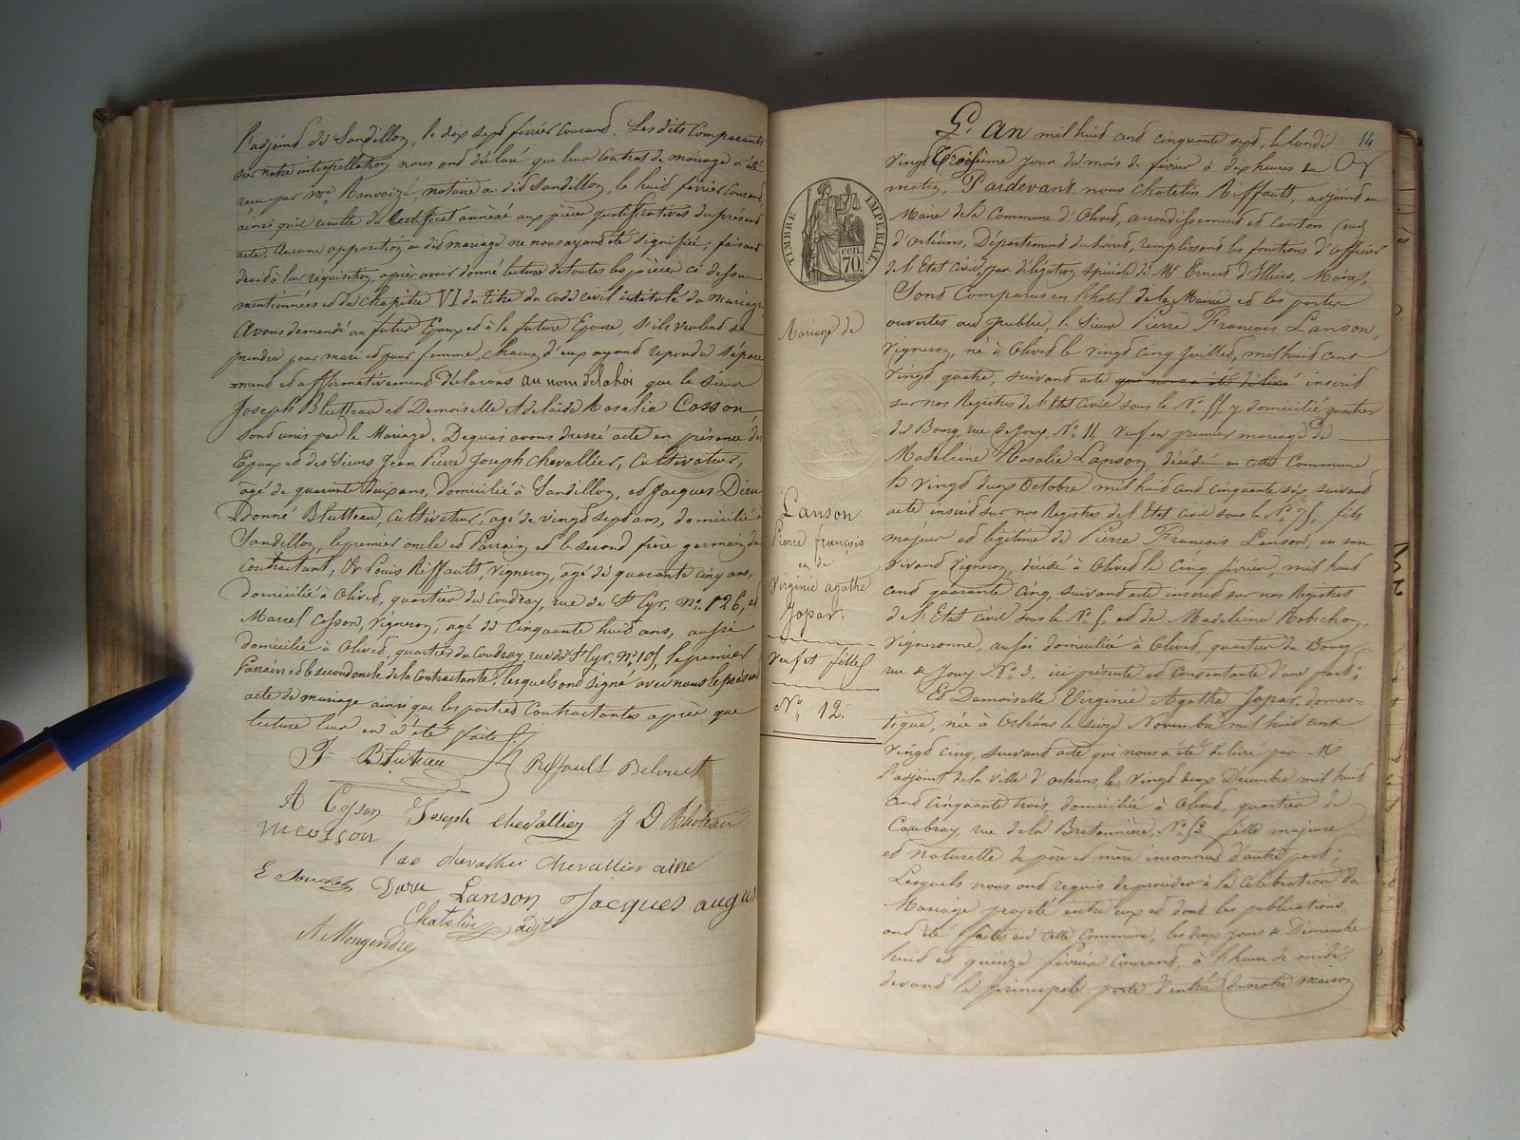 l'adjoint de Sandillon, le dix sept février courant. Les dits Comparants
sur notre interpellation nous ont déclaré que leur contrat de mariage a été
reçu par Me notaire à Sandillon, le huit février courant,
ainsi qu'il résulte du Certificat annexé aux pièces justificatives du présent
acte. Aucune opposition au dit mariage ne nous ayant été signifiée; faisant
droit à leur réquisition, après avoir donné lecture de toutes les pièces ci dessus
mentionnées et du chapitre VI du titre du code civil intitulé du mariage,
Avons demandé au futur Epoux et à la future Epouse, s'ils veulent se
prendre pour mari et pour femme, chacun d'eux ayant répondu séparé
ment et affirmativement déclarons au nom de la loi que le sieur
Joseph Blutteau et Demoiselle Adelaïde Rosalie Cosson,
sont unis par le Mariage. Dequoi avons dressé acte en présence des
Epoux et des Sieurs Jean Pierre Joseph Chevallier, Cultivateur,
agé de quarante deux ans, domicilié à Sandillon, et Jacques Dieu
Donné Blutteau, Cultivateur, agé de vingt sept ans, domicilié à
Sandillon, le premier oncle et Parrain et le second frère germain du
contractant, Et Louis Riffault, Vigneron, agé de quarante cinq ans,
domicilié à Olivet, quartier du Coudray, rue de St Cyr, No 126, et
Marcel Cosson, Vigneron, agé de Cinquante huit ans, aussi
domicilié à Olivet, quartier du Coudray, rue de St Cyr, No 105, le premier
Parrain et le second oncle de la Contractante, lesquels ont signé avec nous le présent
acte de mariage ainsi que les parties Contractantes après que
lecture leur en a été faite
Jh Bluteau Riffault Belouet
A Cosson Joseph chevallier J D Bluteau
m cosson
chevallier chevallier ainé
E Lanson Jacques august
Chatelin adjt
A Mongendre
TIMBRE IMPERIAL
CEN. 70
Mariage de
Lanson
Pierre françois
en de
Virginie agathe
Jopar.
Veuf et fille
No 12.
14
L'AN mil huit cent cinquante sept, le lundi
vingt troisième jour du mois de février à dix heures du
matin, Pardevant nous Chatelin Riffault, adjoint au
Maire de la Commune d'Olivet, arrondissement et canton sud
d'orléans, Département du Loiret, remplissant les fonctions d'officier
de l'Etat Civil, par délégation spéciale de Mr Ernest d'Illiers, Maire,
Sont Comparus en l'hotel de la Mairie et les portes
ouvertes au public, le Sieur Pierre François Lanson,
Vigneron, né à Olivet le vingt cinq juillet, mil huit cent
vingt quatre, suivant acte qui nous a été délivré inscrit
sur nos Registres de l'Etat Civil sous le No 55, y domicilié quartier
du Bourg rue de Jouy, No 11 Veuf en premier mariage de
Madeleine Rosalie Lanson, décédée en cette Commune
le vingt deux Octobre mil huit cent cinquante six, suivant
acte inscrit sur nos Registres de l'Etat civil sous le No 75, fils
majeur et légitime de Pierre François Lanson, en son
vivant Vigneron, décédé à Olivet le Cinq février, mil huit
cent quarante cinq, suivant acte inscrit sur nos Registres
de l'Etat civil sous le No 5, et de Madeleine Robichon,
Vigneronne, aussi domiciliée à Olivet, quartier du Bourg
rue de Jouy No 3. ici présente et consentante d'une part;
Et Demoiselle Virginie Agathe Jopar, domes-
tique, née à Orléans le seize Novembre mil huit cent
vingt cinq, suivant acte qui nous a été délivré par Mr
l'adjoint de la ville d'orléans, le vingt deux Décembre mil huit
cent cinquante trois, domiciliée à Olivet, quartier de
Caubray, rue de la Bretonnière, No 52 fille majeure
et naturelle de père et mère inconnus d'autre part;
Lesquels nous ont requis de procéder à la célébration du
Mariage projeté entre eux et dont les publications
ont été faites en cette Commune, les deux jours de Dimanche
huit et quinze février courant, à l'heure de midi,
devant la principale porte d'entrée de notre maison